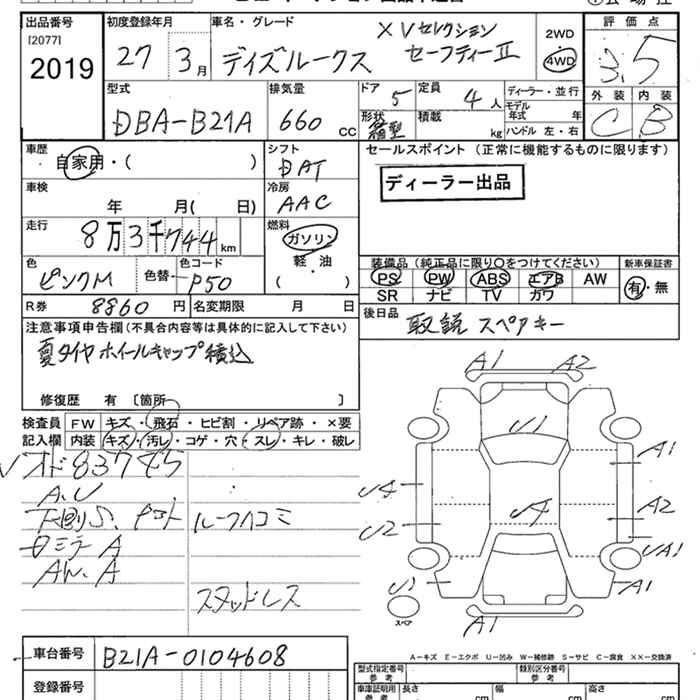 出品番号 初度登録年月 車名・グレード 評価点
[2077]
2019 27 3月 デイズルークス XVセレクション セーフティーII 2WD 4WD 3.5
型式 排気量 ドア 定員 ディーラー・並行 外装 内装
DBA-B21A 660 CC 5 4人 モデル年式 年 C B
形状 箱型 積載 kg ハンドル 左・右
車歴 シフト セールスポイント (正常に機能するものに限ります)
自家用・( ) DAT
ディーラー出品
車検 冷房
年 月( 日) AAC
走行 燃料
8万3千744km ガソリン
軽・油
( )
色 色替 色コード 装備品 (純正品に限り○をつけてください) 新車保証書
ピンクM P50 PS PW ABS エアB AW 有・無
SR ナビ TV カワ
R券 8860円 名変期限 月 日 後日品
取説 スペアキー
注意事項申告欄(不具合内容等は具体的に記入して下さい)
夏タイヤ ホイールキャップ積込
修復歴 有 〔箇所 〕
検査員 FW キズ・飛石・ヒビ割・リペア跡・×要
記入欄 内装 キズ・汚レ・コゲ・穴・スレ・キレ・破レ
オド83745
A.U
下廻りS. ルーフハコミ
A
AW.A
スタッドレス
A1 A2
U1
A1
U4 U4 A2
U2 UA1
U1 A1
スペア
A1
A-キズ E-エクボ U-凹み W-補修跡 S-サビ C-腐食 XX-交換済
車台番号 B21A-0104608
登録番号
型式指定番号 参考 類別区分番号 参考
車庫証明用 参考 長さ cm 幅 cm 高さ cm